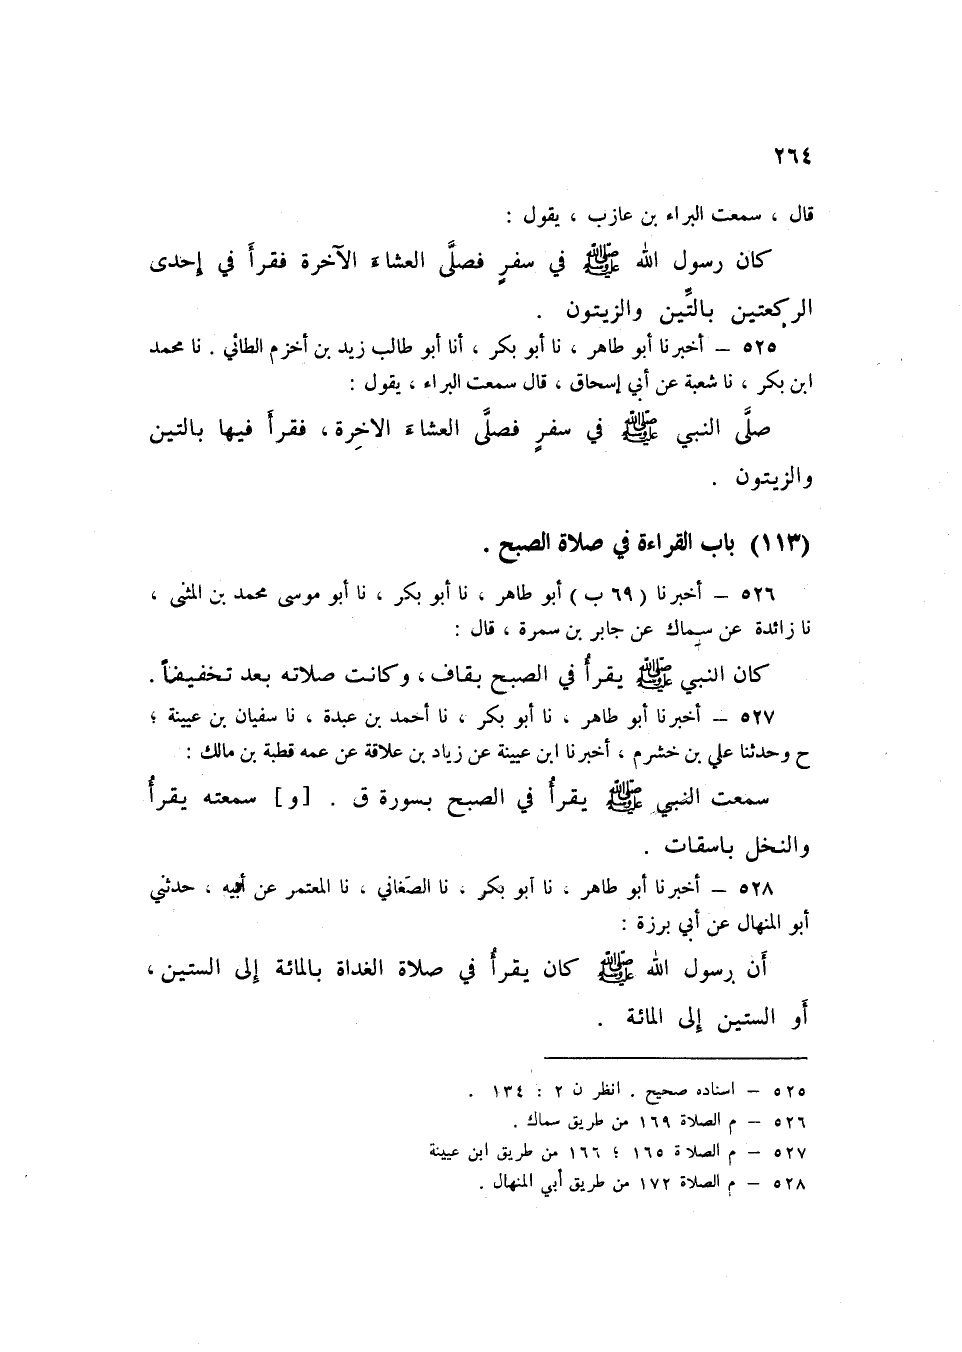 ٢٦٤
قال ، سمعت البراء بن عازب ، يقول :
كان رسول الله ﷺ في سفرٍ فصلَّى العشاءَ الآخرة فقرأَ في إحدى
الركعتين بالتِّين والزيتون .
٥٢٥ – أخبرنا أبو طاهر ، نا أبو بكر ، أنا أبو طالب زيد بن أخزم الطائي . نا محمد
ابن بكر ، نا شعبة عن أبي إسحاق ، قال سمعت البراء ، يقول :
صلَّى النبي ﷺ في سفرٍ فصلَّى العشاءَ الاخِرة ، فقرأَ فيها بالتين
والزيتون .
(١١٣) باب القراءة في صلاة الصبح .
٥٢٦ – أخبرنا ( ٦٩ ب ) أبو طاهر ، نا أبو بكر ، نا أبو موسى محمد بن المثنى ،
نا زائدة عن سِماك عن جابر بن سمرة ، قال :
كان النبي ﷺ يقرأُ في الصبح بقاف ، وكانت صلاته بعد تخفيفاً .
٥٢٧ – أخبرنا أبو طاهر ، نا أبو بكر ، نا أحمد بن عبدة ، نا سفيان بن عيينة ؛
ح وحدثنا علي بن خشرم ، أخبرنا ابن عيينة عن زياد بن علاقة عن عمه قطبة بن مالك :
سمعت النبي ﷺ يقرأُ في الصبح بسورة ق . [ و ] سمعته يقرأُ
والنخل باسقات .
٥٢٨ – أخبرنا أبو طاهر ، نا أبو بكر ، نا الصَغاني ، نا المعتمر عن أبيه ، حدثني
أبو المنهال عن أبي برزة :
أَن رسول الله ﷺ كان يقرأُ في صلاة الغداة بالمائة إلى الستين ،
أَو الستين إلى المائة .
٥٢٥ – اسناده صحيح . انظر ن ٢ : ١٣٤ .
٥٢٦ – م الصلاة ١٦٩ من طريق سماك .
٥٢٧ – م الصلاة ١٦٥ ؛ ١٦٦ من طريق ابن عيينة
٥٢٨ – م الصلاة ١٧٢ من طريق أبي المنهال .